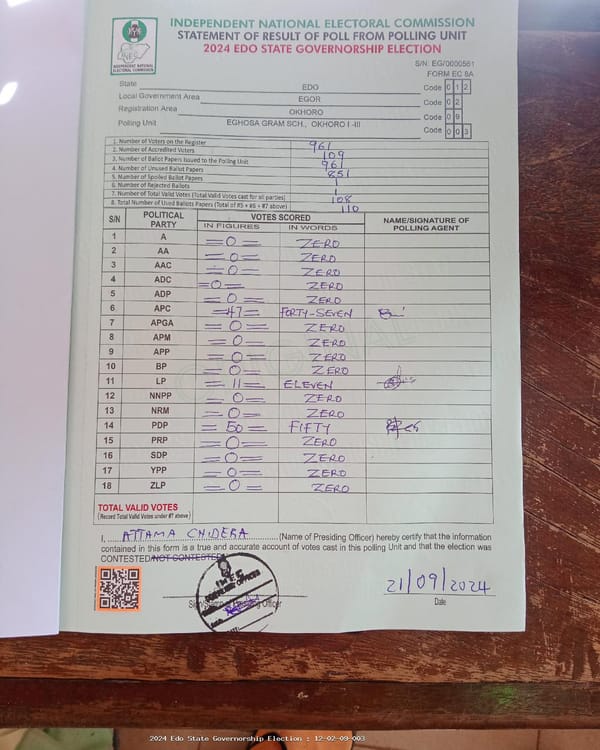 INDEPENDENT NATIONAL ELECTORAL COMMISSION
STATEMENT OF RESULT OF POLL FROM POLLING UNIT
2024 EDO STATE GOVERNORSHIP ELECTION
INDEPENDENT NATIONAL
ELECTORAL COMMISSION
S/N: EG/0000561
FORM EC 8A
State EDO Code 0 1 2
Local Government Area EGOR Code 0 2
Registration Area OKHORO Code 0 9
Polling Unit EGHOSA GRAM SCH., OKHORO I -III Code 0 0 3
1. Number of Voters on the Register 961
2. Number of Accredited Voters 109
3. Number of Ballot Papers Issued to the Polling Unit 961
4. Number of Unused Ballot Papers 851
5. Number of Spoiled Ballot Papers 1
6. Number of Rejected Ballots 1
7. Number of Total Valid Votes (Total Valid Votes cast for all parties) 108
8. Total Number of Used Ballots Papers (Total of #5 + #6 + #7 above) 110
S/N POLITICAL PARTY VOTES SCORED NAME/SIGNATURE OF POLLING AGENT
IN FIGURES IN WORDS
1 A =0= ZERO
2 AA =0= ZERO
3 AAC =0= ZERO
4 ADC =0= ZERO
5 ADP =0= ZERO
6 APC =47= FORTY-SEVEN
7 APGA =0= ZERO
8 APM =0= ZERO
9 APP =0= ZERO
10 BP =0= ZERO
11 LP =11= ELEVEN
12 NNPP =0= ZERO
13 NRM =0= ZERO
14 PDP =50= FIFTY
15 PRP =0= ZERO
16 SDP =0= ZERO
17 YPP =0= ZERO
18 ZLP =0= ZERO
TOTAL VALID VOTES
(Record Total Valid Votes under #7 above)
I, ATTAMA CHIDERA (Name of Presiding Officer) hereby certify that the information
contained in this form is a true and accurate account of votes cast in this polling Unit and that the election was
CONTESTED/NOT CONTESTED
21/09/2024
Officer
Date
2024 Edo State Governorship Election : 12-02-09-003